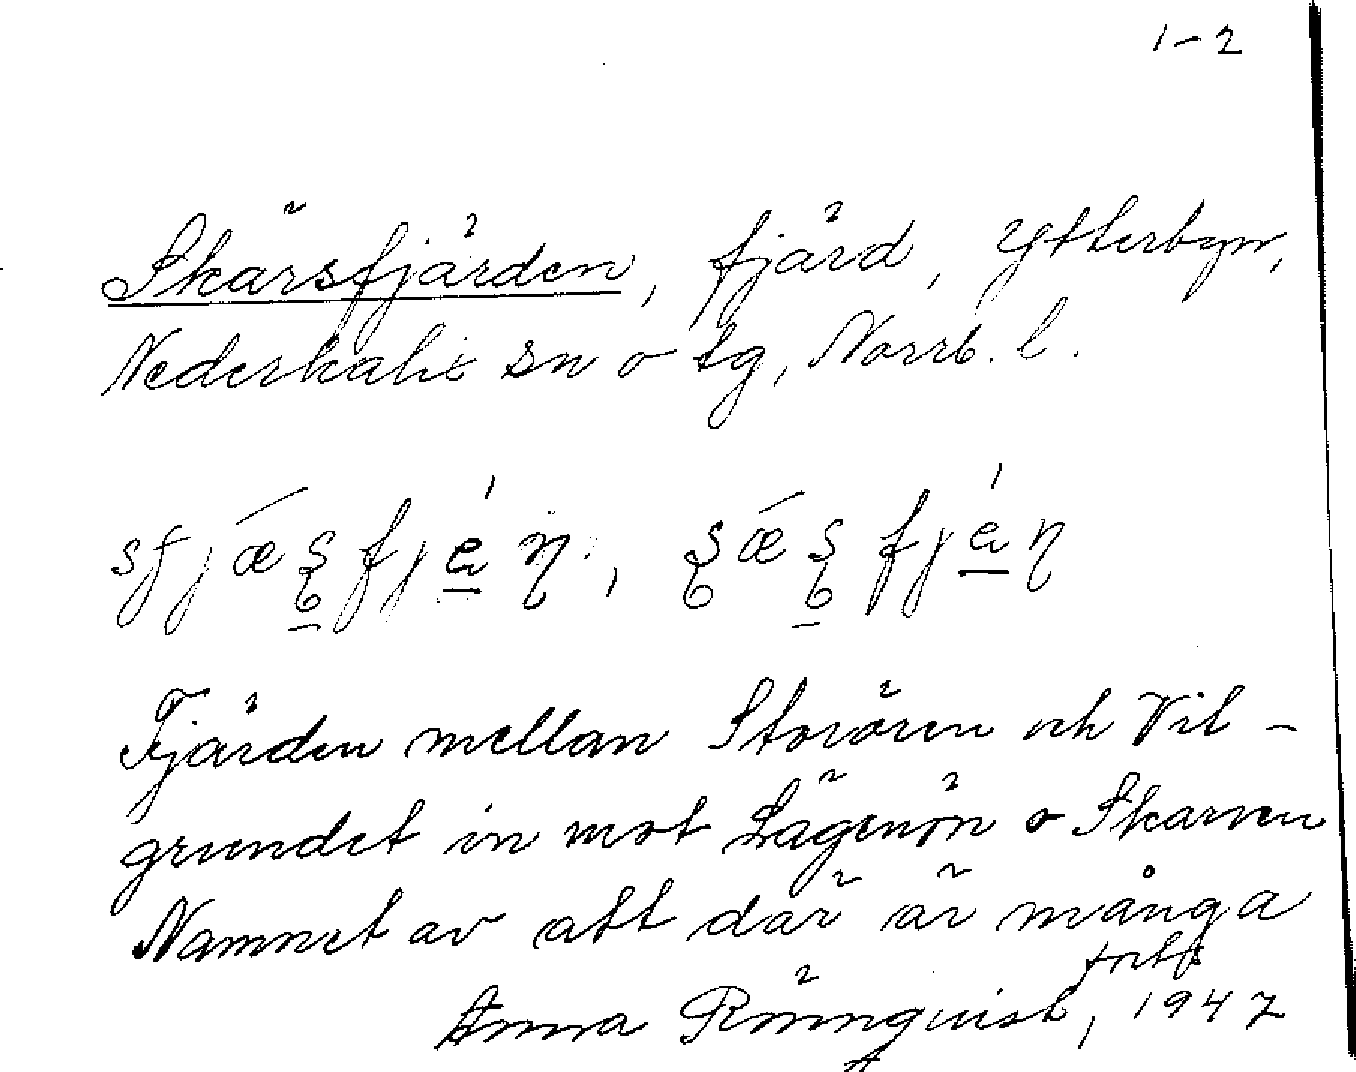 1-2
Skärsfjärden, fjärd, Ytterbyn,
Nederkalix sn o tg, Norrb. l.
Fjärden mellan Storören och Vit-
grundet in mot Lägenön o Skarven
Namnet av att där är många
forts
Anna Rönnquist, 1947